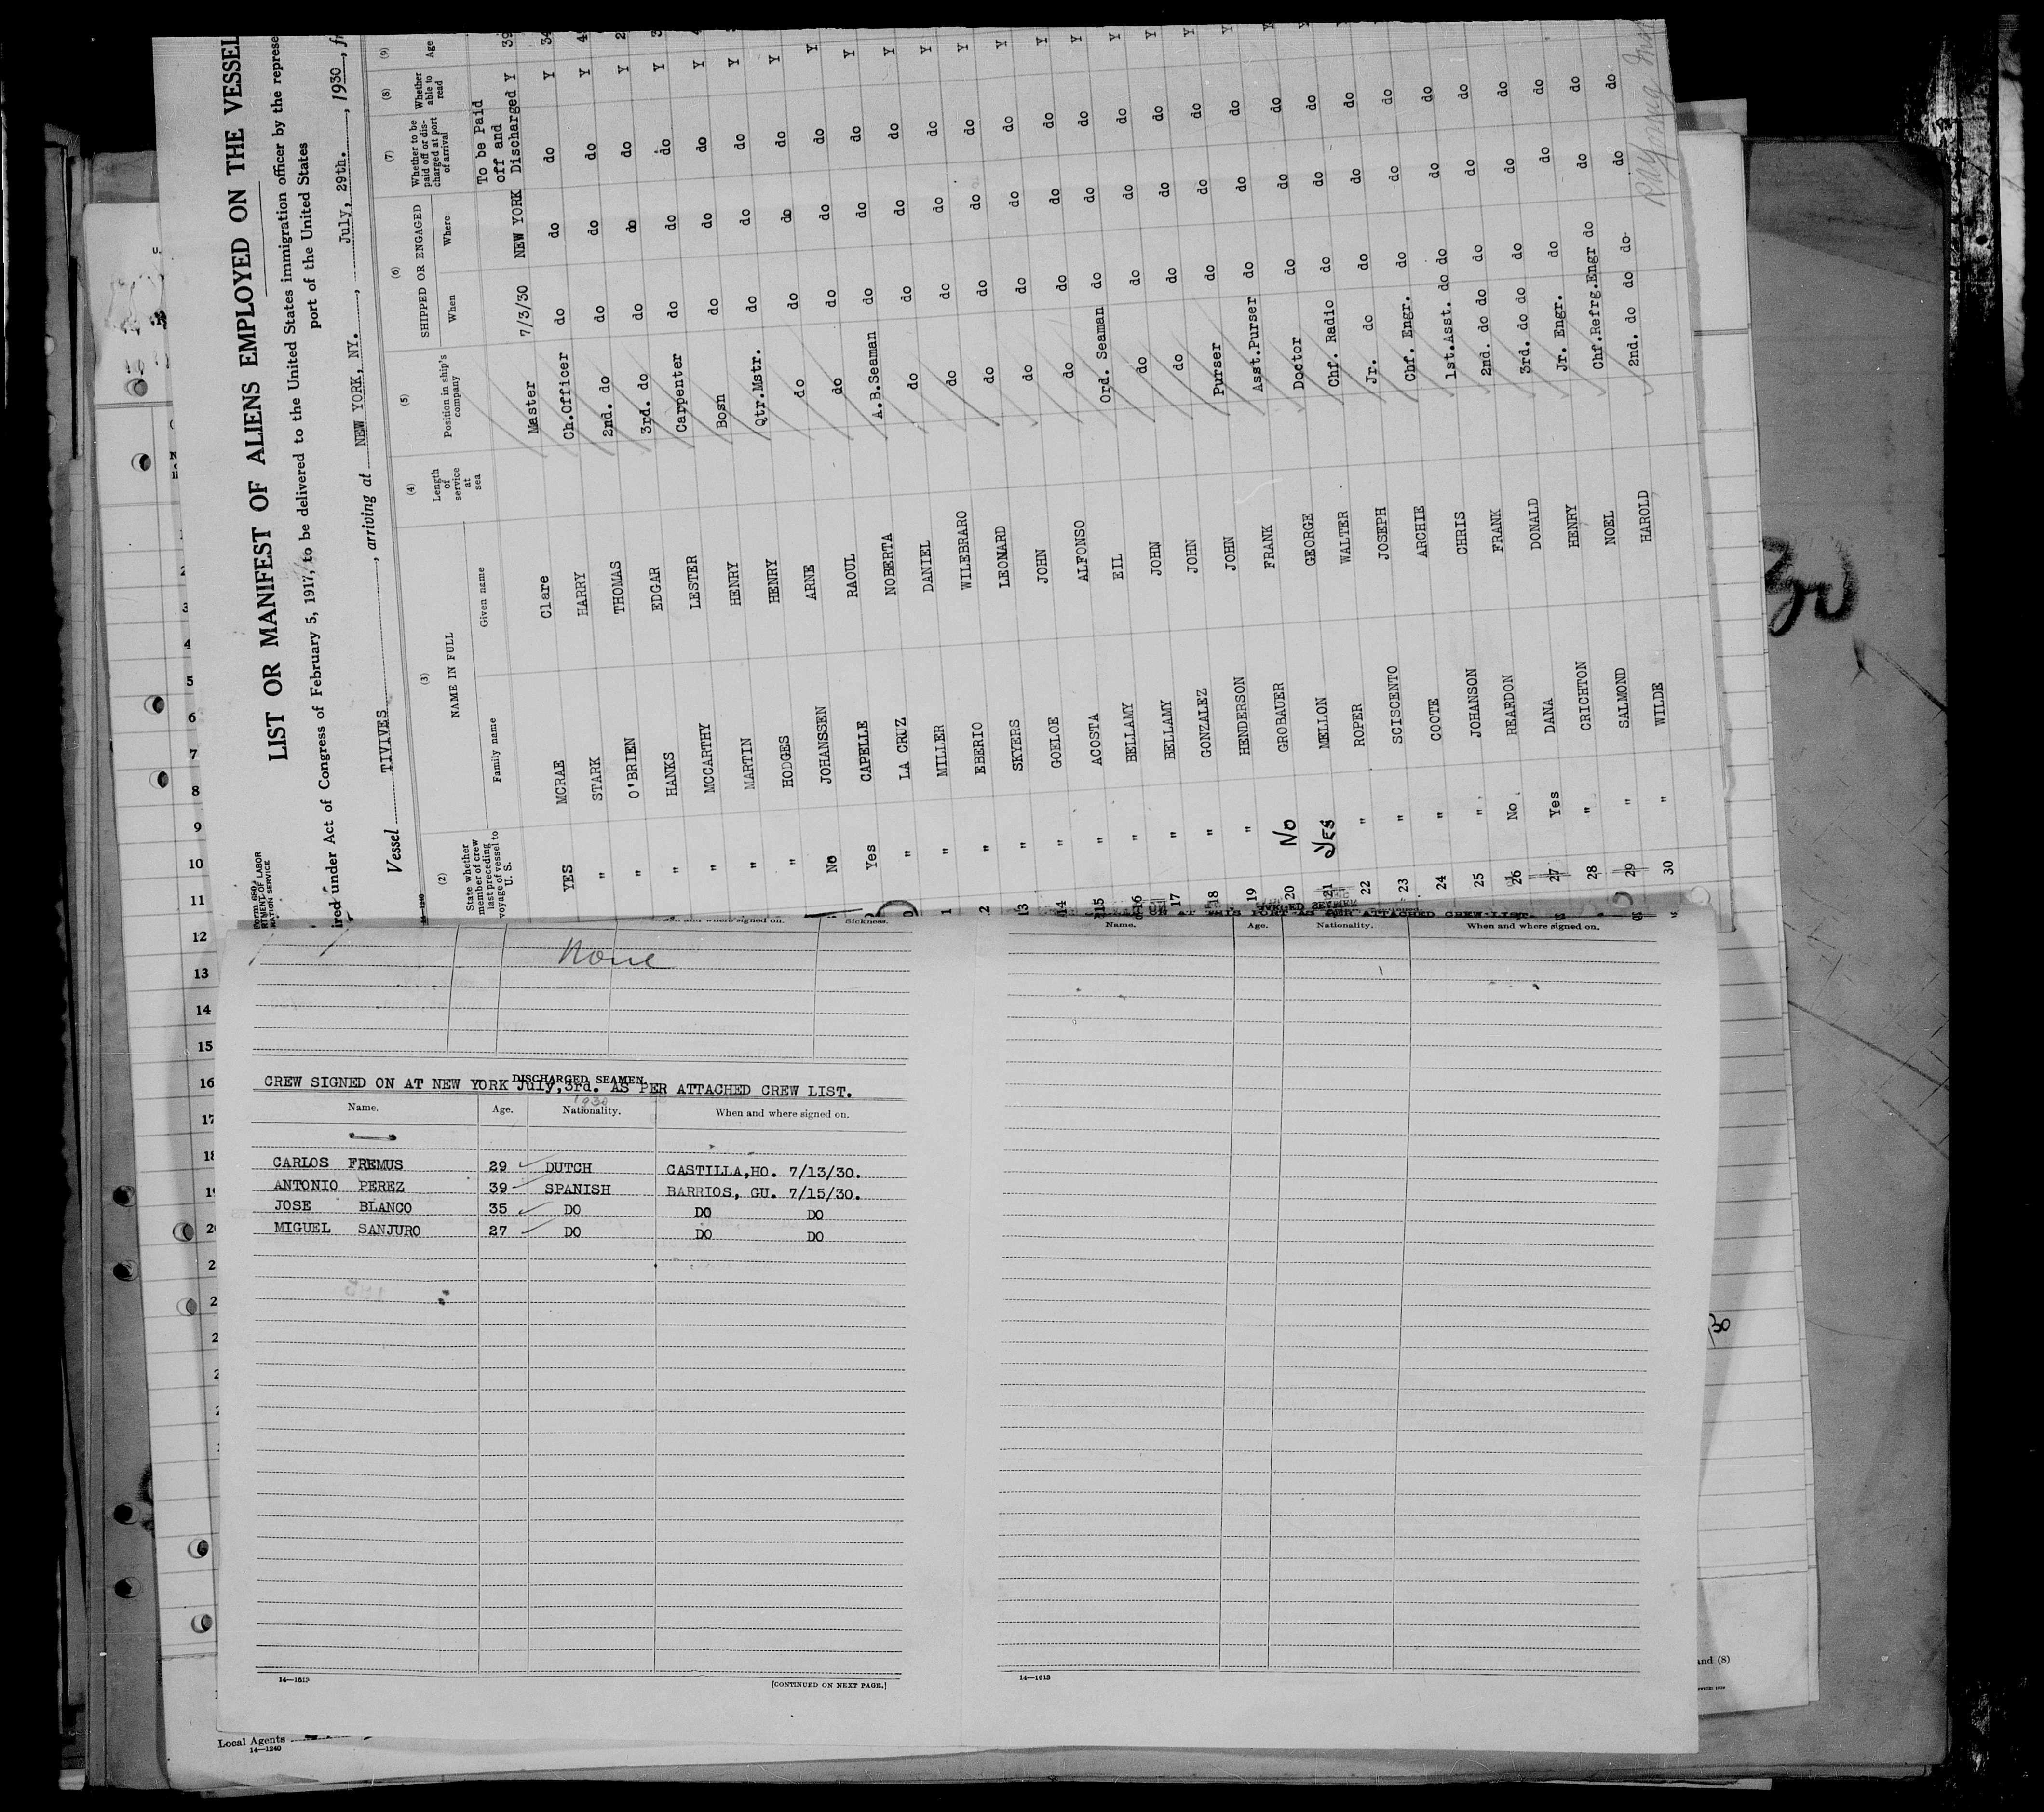 LIST OR MANIFEST OF ALIENS EMPLOYED ON THE VESSEL
ired under Act of Congress of February 5, 1917, to be delivered to the United States immigration officer by the represe
port of the United States
Vessel TIVIVES, arriving at NEW YORK, NY., July, 29th., 1930, f
(2) (3) (4) (5) (6) (7) (8) (9)
State whether member of crew last preceding voyage of vessel to U. S. NAME IN FULL Family name Given name Length of service at sea Position in ship's company SHIPPED OR ENGAGED When Where Whether to be paid off or discharged at port of arrival Whether able to read Age
To be Paid
off and
YES MCRAE Clare Master 7/3/30 NEW YORK Discharged Y 39
" STARK HARRY Ch.Officer do do do Y 34
" O'BRIEN THOMAS 2nd. do do do do Y 4
" HANKS EDGAR 3rd. do do do do Y 2
" MCCARTHY LESTER Carpenter do do do Y 3
" MARTIN HENRY Bosn do do do Y
" HODGES HENRY Qtr.Mstr. do do do Y
No JOHANSSEN ARNE do do do do Y
Yes CAPELLE RAOUL do do do do Y
" LA CRUZ NOBERTA A.B.Seaman do do do Y
1 " MILLER DANIEL do do do do Y
2 " EBERIO WILEBRARO do do do do Y
13 " SKYERS LEONARD do do do do Y
14 " GOELOE JOHN do do do do Y
15 " ACOSTA ALFONSO do do do do Y
16 " BELLAMY EIL Ord. Seaman do do do Y
17 " BELLAMY JOHN do do do do Y
18 " GONZALEZ JOHN do do do do Y
19 " HENDERSON JOHN Purser do do do Y
20 No GROBAUER FRANK Asst.Purser do do do Y
21 Yes MELLON GEORGE Doctor do do do Y
22 " ROPER WALTER Chf. Radio do do do
23 " SCISCENTO JOSEPH Jr. do do do do
24 " COOTE ARCHIE Chf. Engr. do do do
25 " JOHANSON CHRIS 1st.Asst. do do do do
26 No REARDON FRANK 2nd. do do do do do
27 Yes DANA DONALD 3rd. do do do do do
28 " CRICHTON HENRY Jr. Engr. do do do
29 " SALMOND NOEL Chf.Refrg.Engr do do do
30 " WILDE HAROLD 2nd. do do do do do
None
DISCHARGED SEAMEN.
CREW SIGNED ON AT NEW YORK July,3rd. AS PER ATTACHED CREW LIST.
1930
Name. Age. Nationality. When and where signed on.
CARLOS FREMUS 29 DUTCH CASTILLA,HO. 7/13/30.
ANTONIO PEREZ 39 SPANISH BARRIOS, GU. 7/15/30.
JOSE BLANCO 35 DO DO DO
MIGUEL SANJURO 27 DO DO DO
14—1613
[CONTINUED ON NEXT PAGE.]
Name. Age. Nationality. When and where signed on.
14—1613
Local Agents
14—1240
3
4
5
6
7
8
9
10
11
12
13
14
15
16
17
and (8)
/30